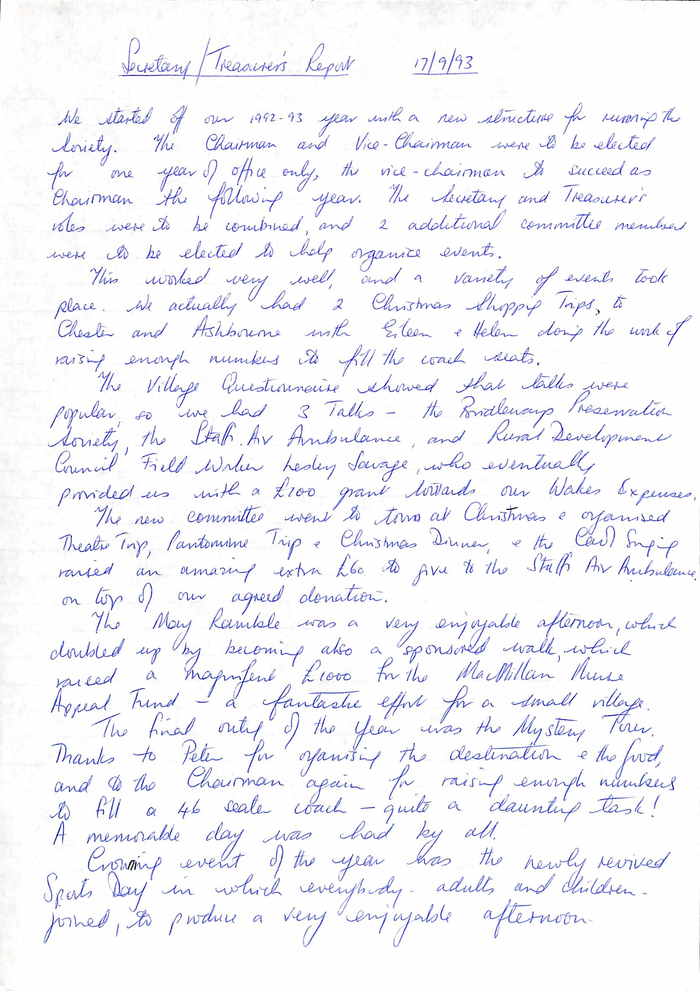 Secretary/Treasurer's Report 17/9/93
We started off our 1992-93 year with a new structure for running the
Society. The Chairman and Vice-Chairman were to be elected
for one year of office only, the vice-chairman to succeed as
Chairman the following year. The Secretary and Treasurer's
roles were to be combined, and 2 additional committee members
were to be elected to help organise events.
This worked very well, and a variety of events took
place. We actually had 2 Christmas Shoppig Trips, to
Chester and Ashbourne with Eileen & Helen doing the work of
raising enough numbers to fill the coach seats.
The Village Questionnaire showed that talks were
popular, so we had 3 Talks - the Brindleways Preservation
Society, the Staffs. Air Ambulance, and Rural Development
Council Field Worker Lesley Savage, who eventually
provided us with a £100 grant towards our Wakes Expenses.
The new committee went to town at Christmas & organised
Theatre Trip, Pantomime Trip & Christmas Dinner, & the Carol Singing
raised an amazing extra £60 to give to the Staffs Air Ambulance
on top of our agreed donation.
The May Ramble was a very enjoyable afternoon, which
doubled up by becoming also a sponsored walk, which
raised a magnificent £1000 for the MacMillan Nurse
Appeal Fund - a fantastic effort for a small village.
The final outing of the year was the Mystery Tour.
Thanks to Peter for organising the destination & the food,
and to the Chairman again for raising enough numbers
to fill a 46 seater coach - quite a daunting task!
A memorable day was had by all.
Crowning event of the year was the newly revived
Sports Day in which everybody - adults and children -
joined, to produce a very enjoyable afternoon.